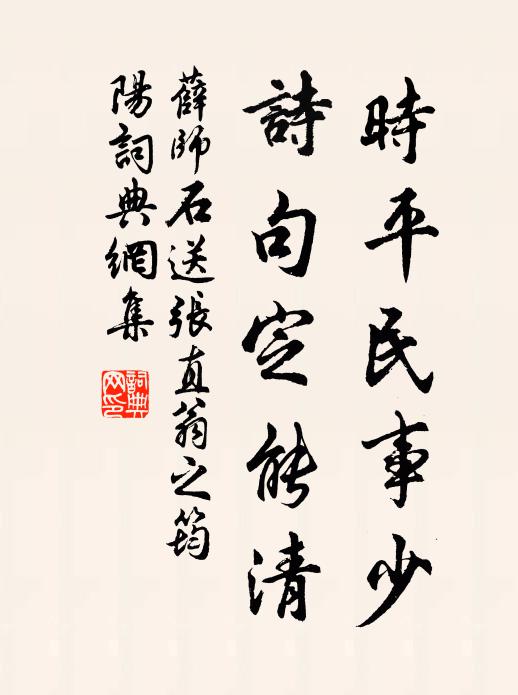 時平民事少
詩句定能清
薛師石送張直翁之筠
陽詞典網集
詞典
网印